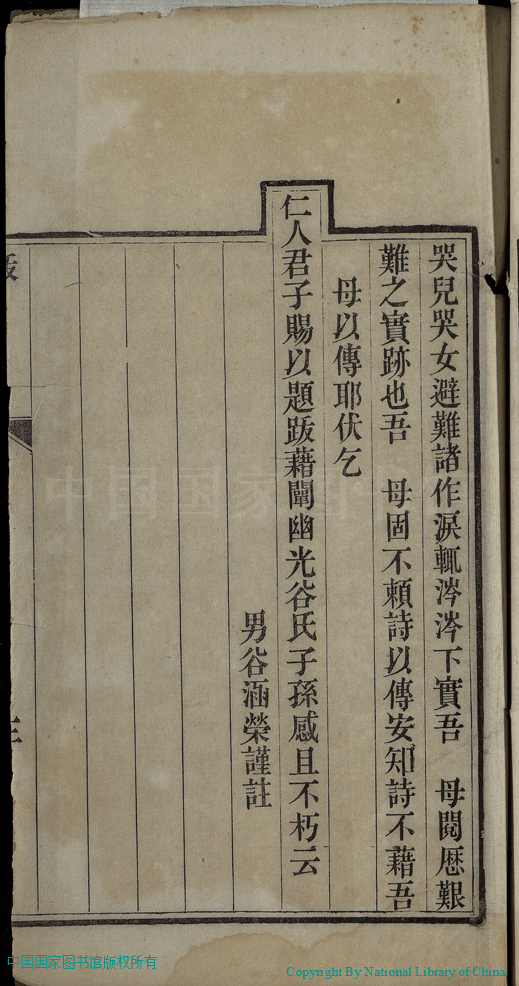 哭兒哭女避難諸作淚輒涔涔下實吾　母閱厯艱
難之實跡也吾　母固不賴詩以傳安知詩不藉吾
母以傳耶伏乞
仁人君子賜以題跋藉闡幽光谷氏子孫感且不朽云
男谷涵榮謹註
中国国家图书馆版权所有
Copyright By National Library of China